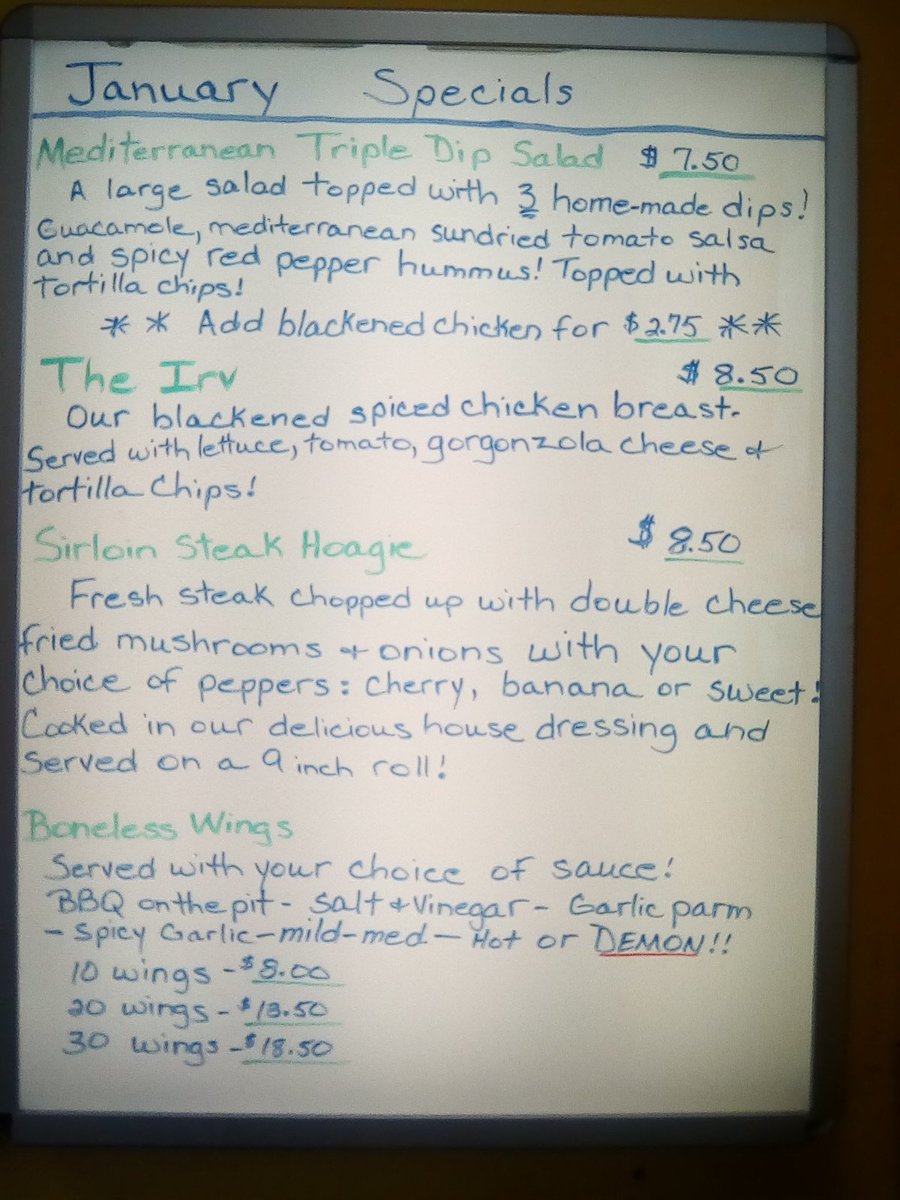 January Specials
Mediterranean Triple Dip Salad $7.50
A large salad topped with 3 home-made dips!
Guacamole, mediterranean sundried tomato salsa
and spicy red pepper hummus! Topped with
tortilla chips!
** Add blackened chicken for $2.75 **
The Irv $8.50
Our blackened spiced chicken breast.
Served with lettuce, tomato, gorgonzola cheese &
tortilla chips!
Sirloin Steak Hoagie $8.50
Fresh steak chopped up with double cheese
fried mushrooms & onions with your
choice of peppers: cherry, banana or sweet!
Cooked in our delicious house dressing and
served on a 9 inch roll!
Boneless Wings
Served with your choice of sauce!
BBQ on the pit - Salt & Vinegar - Garlic parm
- Spicy Garlic - mild - med - Hot or DEMON!!
10 wings - $8.00
20 wings - $13.50
30 wings - $18.50